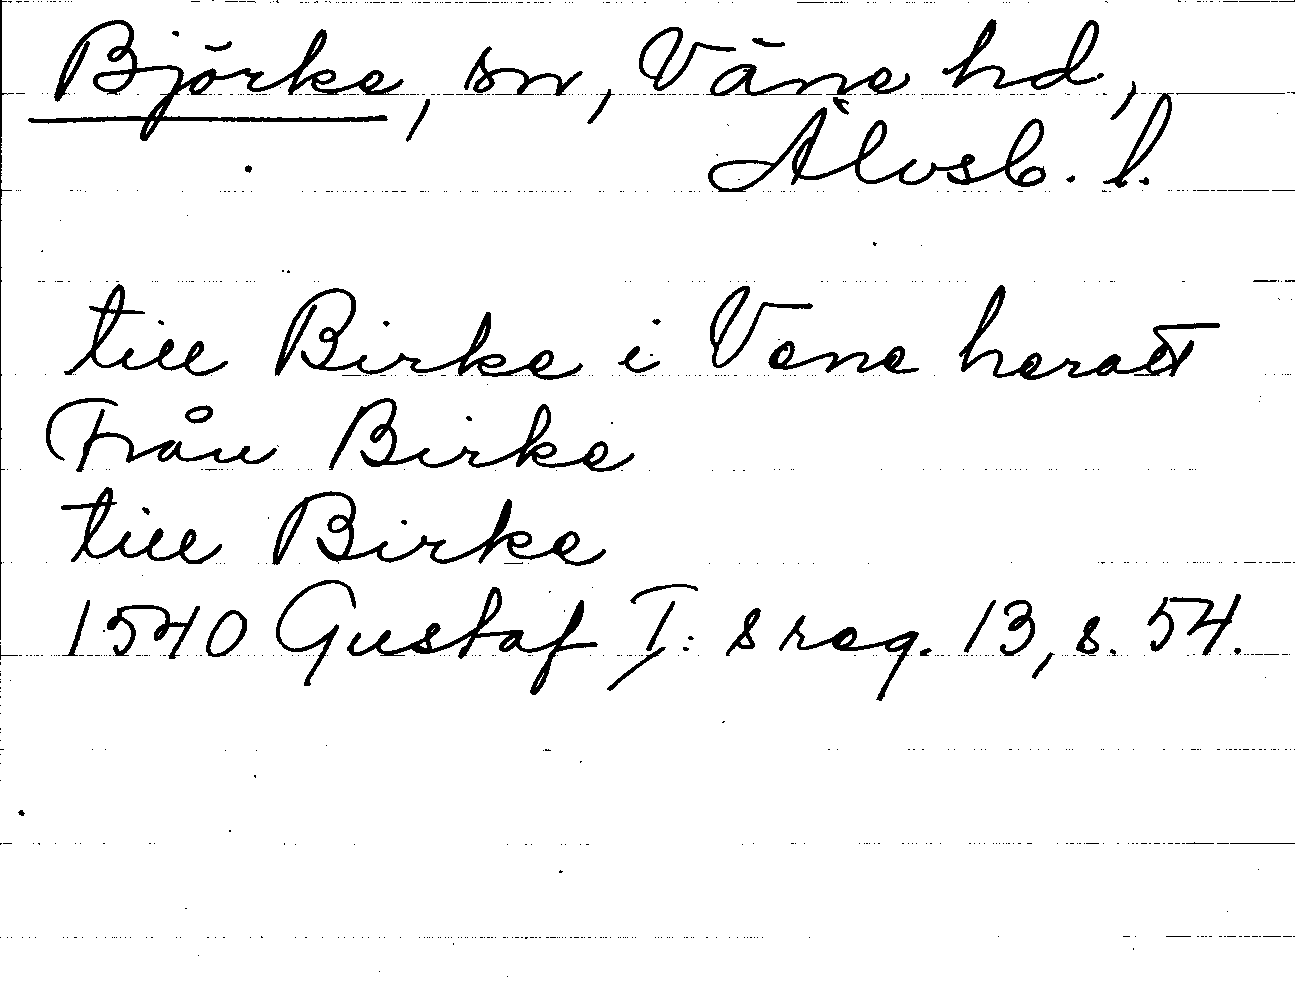 Björke, sn, Väne hd,
Älvsb. l.
till Birke i Vene heratt
Från Birke
till Birke
1540 Gustaf I: s reg. 13, s. 54.